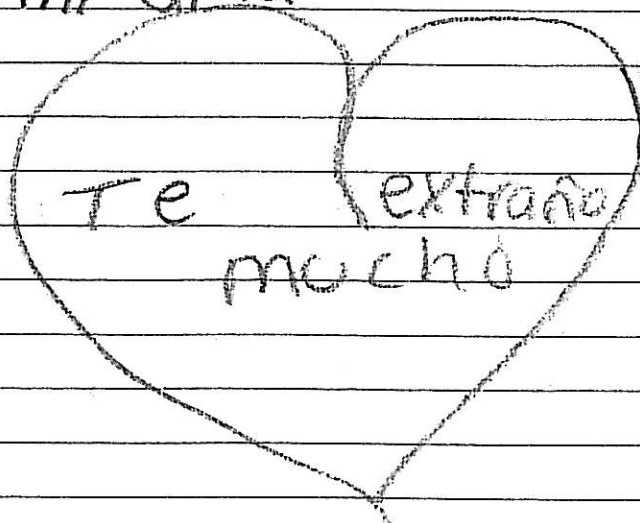 Te extraño
mucho